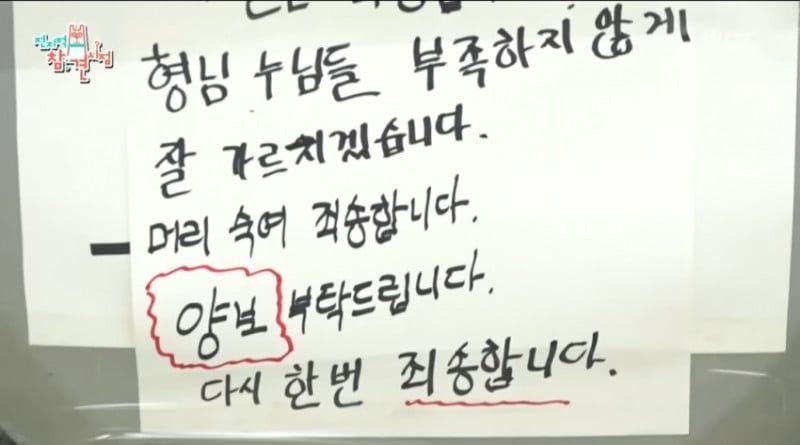 전지적
참견시점
형님 누님들 부족하지 않게
잘 가르치겠습니다.
머리 숙여 죄송합니다.
양보 부탁드립니다.
다시 한번 죄송합니다.